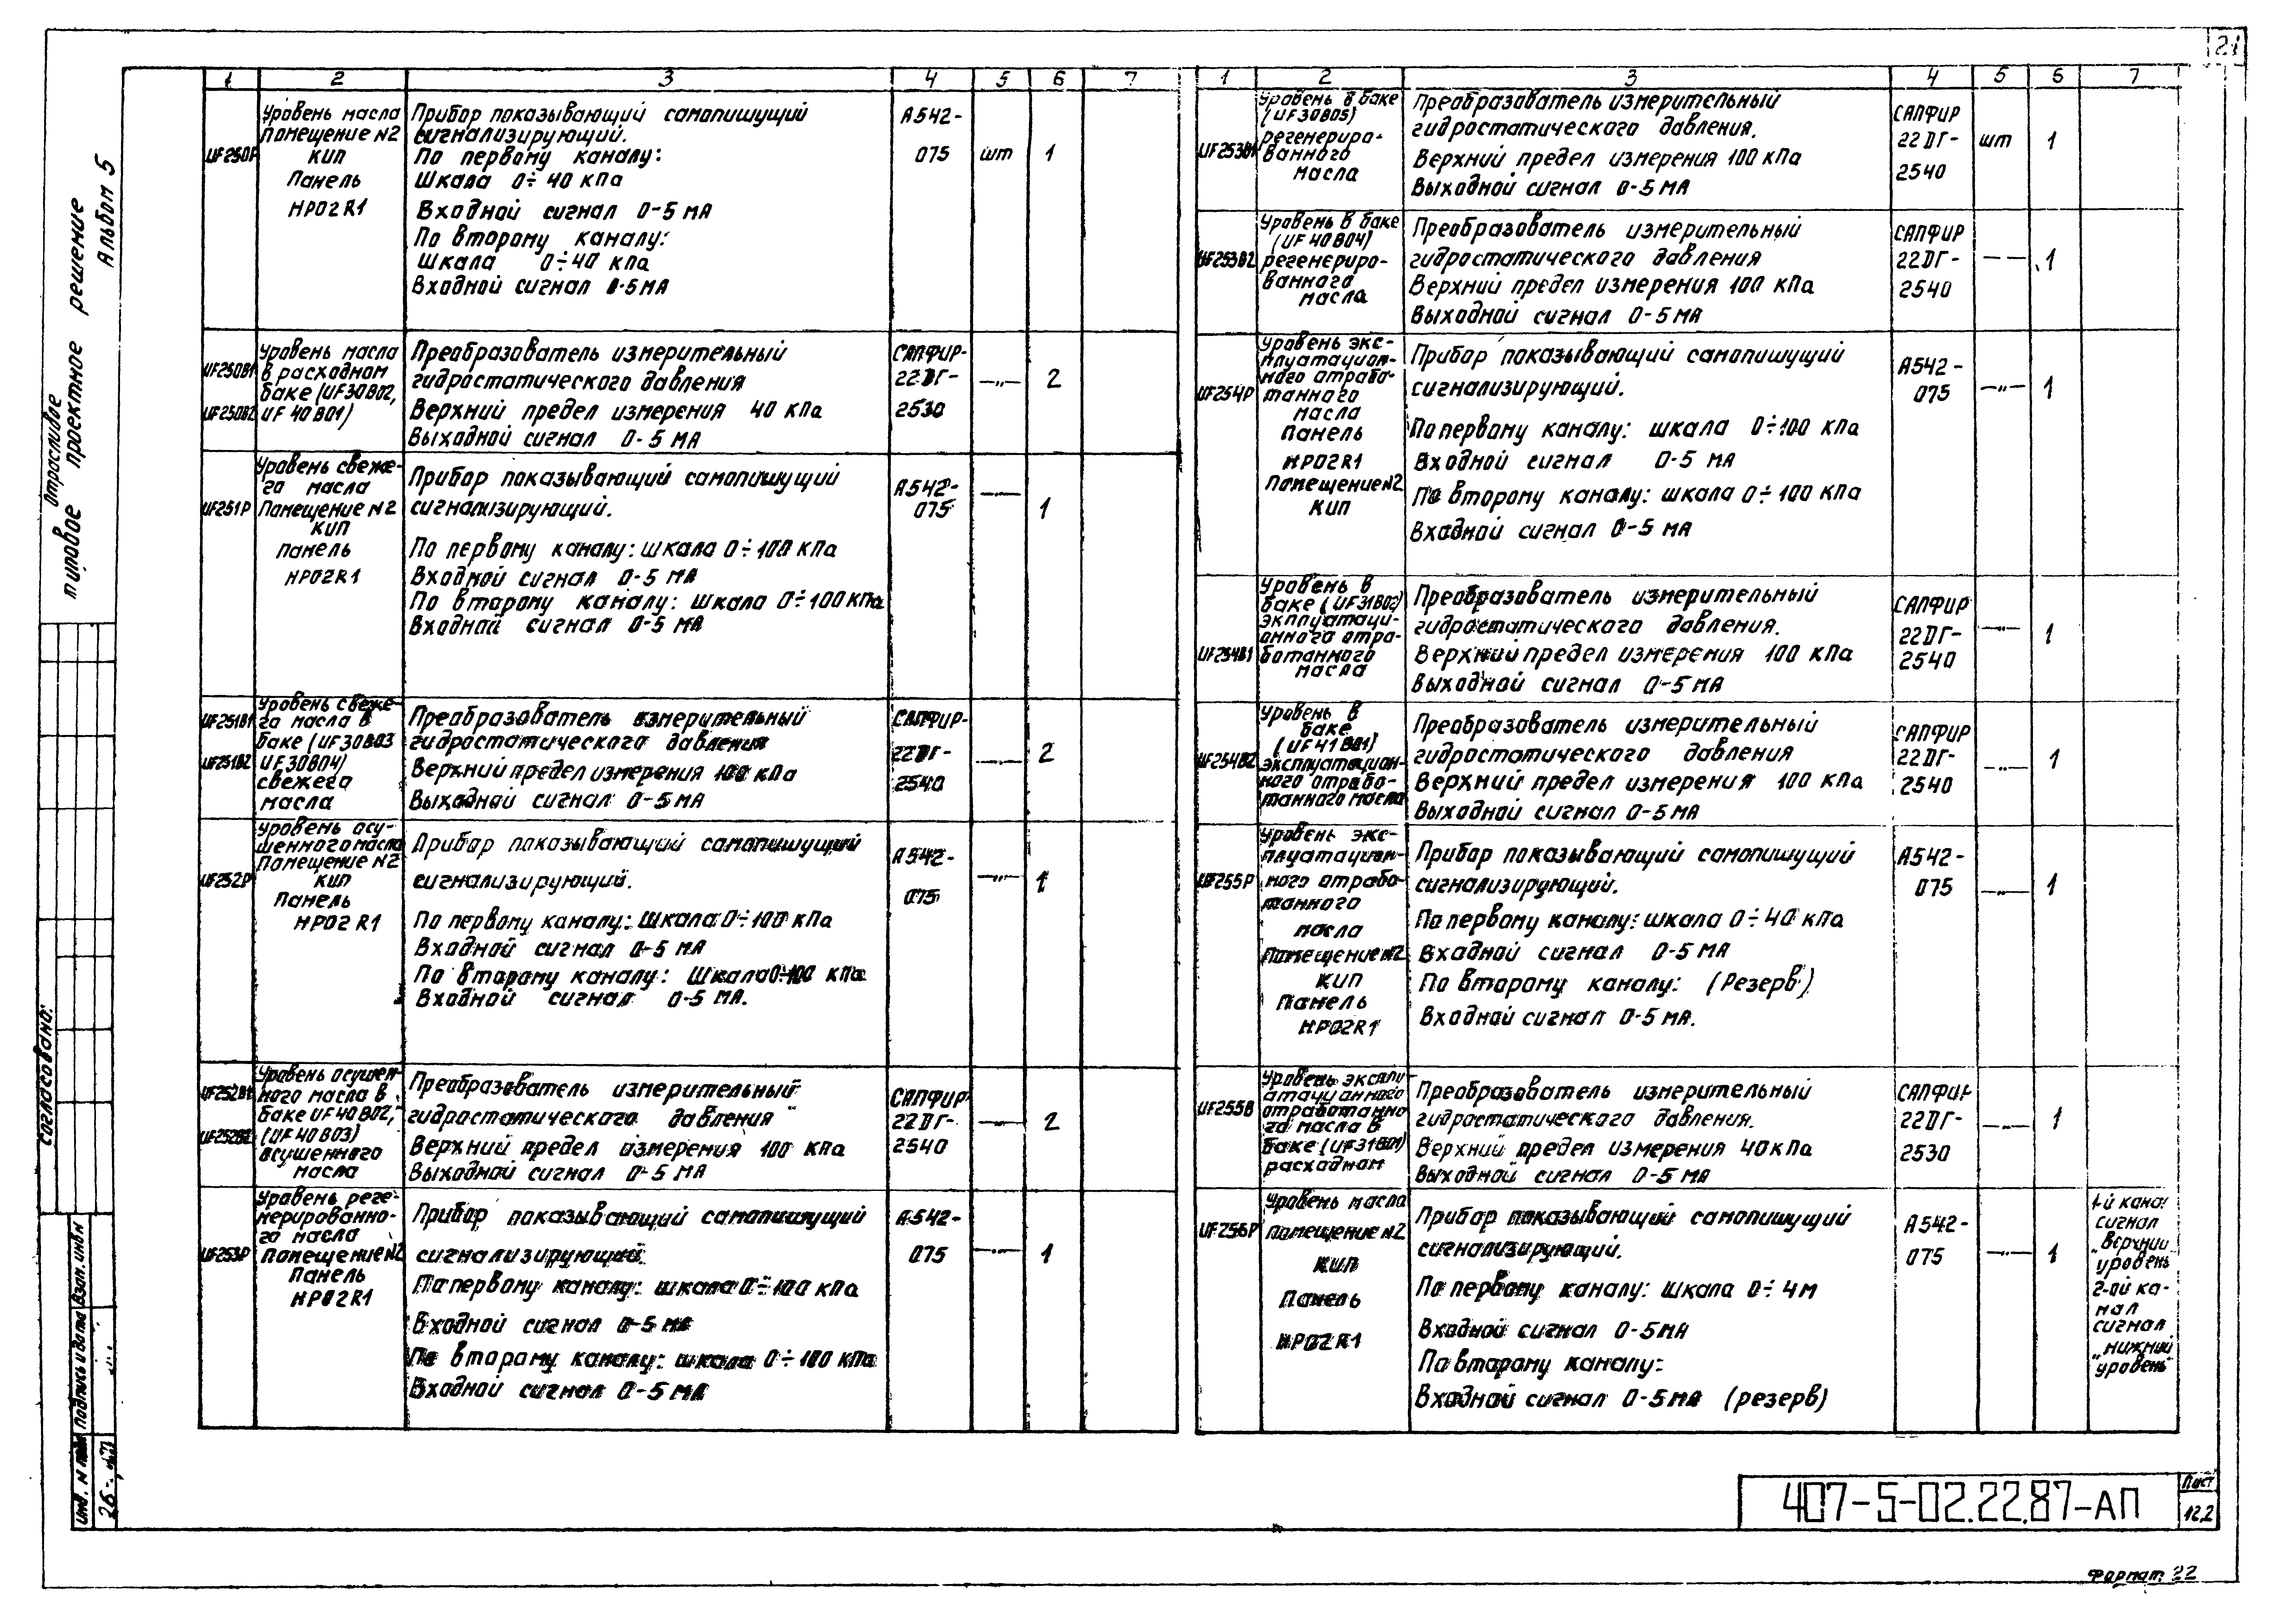 21
Отраслевое
типовое проектное решение
Альбом 5
Согласовано:
Инв. N подл
Подпись и дата
Взам. инв N
1 2 3 4 5 6 7
UF250P
Уровень масла
Помещение N2
КИП
Панель
HP02R1
Прибор показывающий самопишущий
сигнализирующий.
По первому каналу:
Шкала 0÷40 кПа
Входной сигнал 0-5 МА
По второму каналу:
Шкала 0÷40 кПа
Входной сигнал 0-5 МА
А542-
075
шт
1
UF250B1
UF250B2
Уровень масла
в расходном
баке (UF30B02,
UF 40 B01)
Преобразователь измерительный
гидростатического давления
Верхний предел измерения 40 кПа
Выходной сигнал 0-5 МА
САПФИР-
22ДГ-
2530
—"—
2
UF251P
Уровень свеже-
го масла
Помещение N2
КИП
Панель
HP02R1
Прибор показывающий самопишущий
сигнализирующий.
По первому каналу: шкала 0÷100 кПа
Входной сигнал 0-5 МА
По второму каналу: шкала 0÷100 кПа
Входной сигнал 0-5 МА
А542-
075
—"—
1
UF251B1
UF251B2
Уровень свеже-
го масла в
баке (UF30B03
UF30B04)
свежего
масла
Преобразователь измерительный
гидростатического давления
Верхний предел измерения 100 кПа
Выходной сигнал 0-5 МА
САПФИР-
22ДГ-
2540
—"—
2
UF252P
Уровень осу-
шенного масла
Помещение N2
КИП
Панель
HP02R1
Прибор показывающий самопишущий
сигнализирующий.
По первому каналу: Шкала 0÷100 кПа
Входной сигнал 0-5 МА
По второму каналу: Шкала 0÷100 кПа
Входной сигнал 0-5 МА.
А542-
075
—"—
1
UF252B1
UF252B2
Уровень осушен-
ного масла в
баке UF40B02,
(UF40B03)
осушенного
масла
Преобразователь измерительный
гидростатического давления
Верхний предел измерения 100 кПа
Выходной сигнал 0-5 МА
САПФИР
22ДГ-
2540
—"—
2
UF253P
Уровень реге-
нерированно-
го масла
Помещение N2
Панель
HP02R1
Прибор показывающий самопишущий
сигнализирующий.
По первому каналу: шкала 0÷100 кПа
Входной сигнал 0-5 МА
По второму каналу: шкала 0÷100 кПа
Входной сигнал 0-5 МА
А542-
075
—"—
1
1 2 3 4 5 6 7
UF253B1
Уровень в баке
(UF30B05)
регенериро-
ванного
масла
Преобразователь измерительный
гидростатического давления.
Верхний предел измерения 100 кПа
Выходной сигнал 0-5 МА
САПФИР
22ДГ-
2540
шт
1
UF253B2
Уровень в баке
(UF40B04)
регенериро-
ванного
масла
Преобразователь измерительный
гидростатического давления
Верхний предел измерения 100 кПа
Выходной сигнал 0-5 МА
САПФИР
22ДГ-
2540
—"—
1
UF254P
Уровень экс-
плуатацион-
ного отрабо-
танного
масла
Панель
HP02R1
Помещение N2
КИП
Прибор показывающий самопишущий
сигнализирующий.
По первому каналу: шкала 0÷100 кПа
Входной сигнал 0-5 МА
По второму каналу: шкала 0÷100 кПа
Входной сигнал 0-5 МА
А542-
075
—"—
1
UF254B1
Уровень в
баке (UF31B02)
эксплуатаци-
онного отра-
ботанного
масла
Преобразователь измерительный
гидростатического давления.
Верхний предел измерения 100 кПа
Выходной сигнал 0-5 МА
САПФИР
22ДГ-
2540
—"—
1
UF254B2
Уровень в
баке
(UF41B01)
эксплуатацион-
ного отрабо-
танного масла
Преобразователь измерительный
гидростатического давления
Верхний предел измерения 100 кПа
Выходной сигнал 0-5 МА
САПФИР
22ДГ-
2540
—"—
1
UF255P
Уровень экс-
плуатацион-
ного отрабо-
танного
масла
Помещение N2
КИП
Панель
HP02R1
Прибор показывающий самопишущий
сигнализирующий.
По первому каналу: шкала 0÷40 кПа
Входной сигнал 0-5 МА
По второму каналу: (Резерв)
Входной сигнал 0-5 МА.
А542-
075
—"—
1
UF255B
Уровень эксплу-
атационного
отработанно
го масла в
баке (UF31B01)
расходном
Преобразователь измерительный
гидростатического давления.
Верхний предел измерения 40 кПа
Выходной сигнал 0-5 МА
САПФИР
22ДГ-
2530
—"—
1
UF256P
Уровень масла
помещение N2
КИП
Панель
HP02R1
Прибор показывающий самопишущий
сигнализирующий.
По первому каналу: Шкала 0÷4м
Входной сигнал 0-5МА
По второму каналу:
Входной сигнал 0-5МА (резерв)
А542-
075
—"—
1
1-й канал
сигнал
„верхний
уровень
2-ой ка-
нал
сигнал
„нижний
уровень"
407-5-02.22.87-АП
Лист
12.2
Формат 22